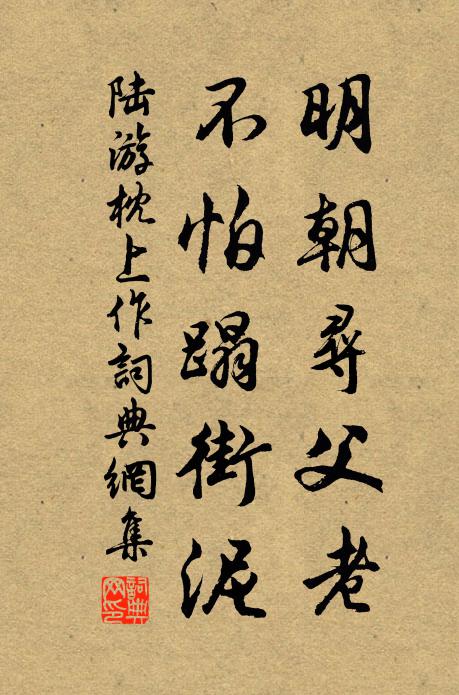 明朝尋父老
不怕蹋街泥
陆游枕上作詞典網集
詞典网印